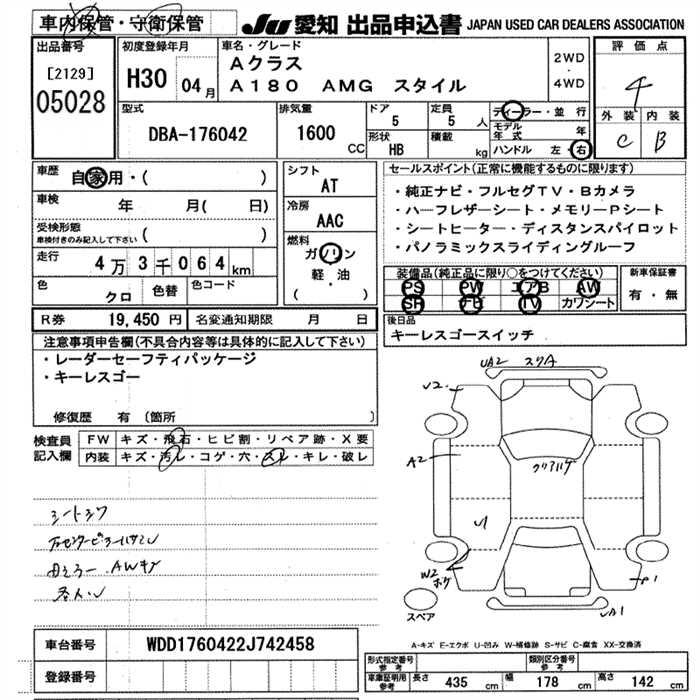 車内保管・守衛保管
JU 愛知 出品申込書 JAPAN USED CAR DEALERS ASSOCIATION
出品番号
[2129]
05028
初度登録年月
H30 04月
車名・グレード
Aクラス
A180 AMG スタイル
2WD
・
4WD
評価点
4
外装 内装
C B
型式
DBA-176042
排気量
1600 CC
ドア
5
形状
HB
定員
5 人
積載
kg
ディーラー・並行
モデル年式 年
ハンドル 左・右
車歴
自家用・( )
車検
年 月( 日)
受検形態
車検付きのみ記入して下さい ( )
走行
4万3千064km
色
クロ
色替
色コード
シフト
AT
冷房
AAC
燃料
ガソリン
軽・油
( )
セールスポイント(正常に機能するものに限ります)
・純正ナビ・フルセグTV・Bカメラ
・ハーフレザーシート・メモリーPシート
・シートヒーター・ディスタンスパイロット
・パノラミックスライディングルーフ
装備品(純正品に限り○をつけてください)
PS PW エアB AW
SR ナビ TV カワシート
新車保証書
有・無
R券 19,450 円 名変通知期限 月 日
後日品
キーレスゴースイッチ
注意事項申告欄(不具合内容等は具体的に記入して下さい)
・レーダーセーフティパッケージ
・キーレスゴー
修復歴 有 (箇所 )
検査員記入欄
FW キズ・飛石・ヒビ割・リペア跡・X要
内装 キズ・汚レ・コゲ・穴・スレ・キレ・破レ
UA2 スリA
A2
W2
UA1
スペア
A-キズ E-エクボ U-凹み W-補修跡 S-サビ C-腐食 XX-交換済
車台番号 WDD1760422J742458
登録番号
形式指定番号 参考
類別区分番号 参考
車庫証明用 参考 長さ 435 cm 幅 178 cm 高さ 142 cm